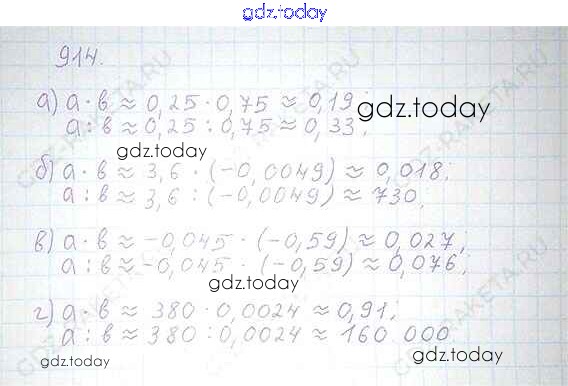 gdz.today
914.
а) a · b ≈ 0,25 · 0,75 ≈ 0,19;
gdz.today
a : b ≈ 0,25 : 0,75 ≈ 0,33;
gdz.today
б) a · b ≈ 3,6 · (-0,0049) ≈ 0,018;
a : b ≈ 3,6 : (-0,0049) ≈ 730,
в) a · b ≈ -0,045 · (-0,59) ≈ 0,027;
a : b ≈ -0,045 · (-0,59) ≈ 0,076;
gdz.today
г) a · b ≈ 380 · 0,0024 ≈ 0,91;
a : b ≈ 380 : 0,0024 ≈ 160 000
gdz.today
gdz.today